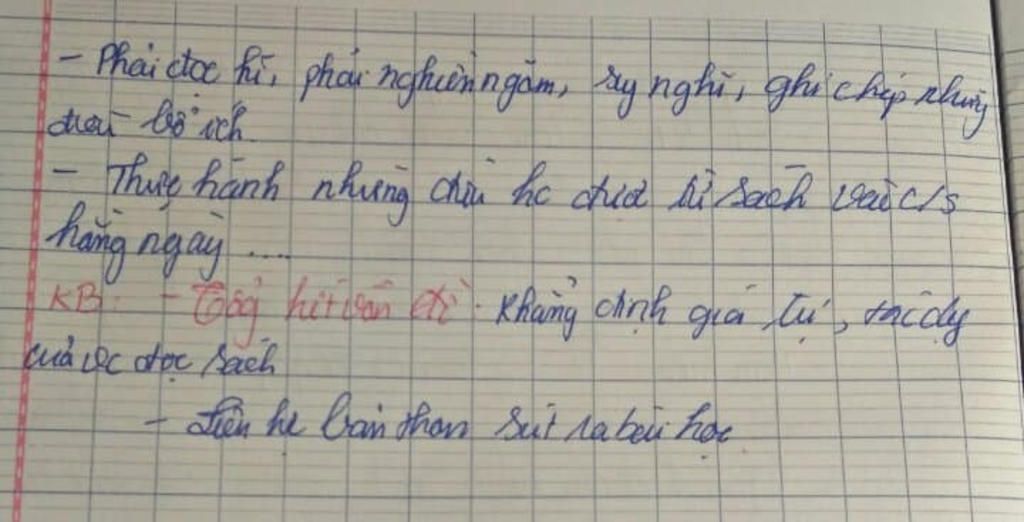 - Phải đọc kĩ, phải nghiền ngẫm, suy nghĩ, ghi chép những
điều bổ ích
- Thực hành những điều hc được từ sách vào c/s
hằng ngày ....
KB: - Tổng kết vấn đề: Khẳng định giá trị, tác dụng
của vc đọc sách
- Liên hệ bản thân rút ra bài học